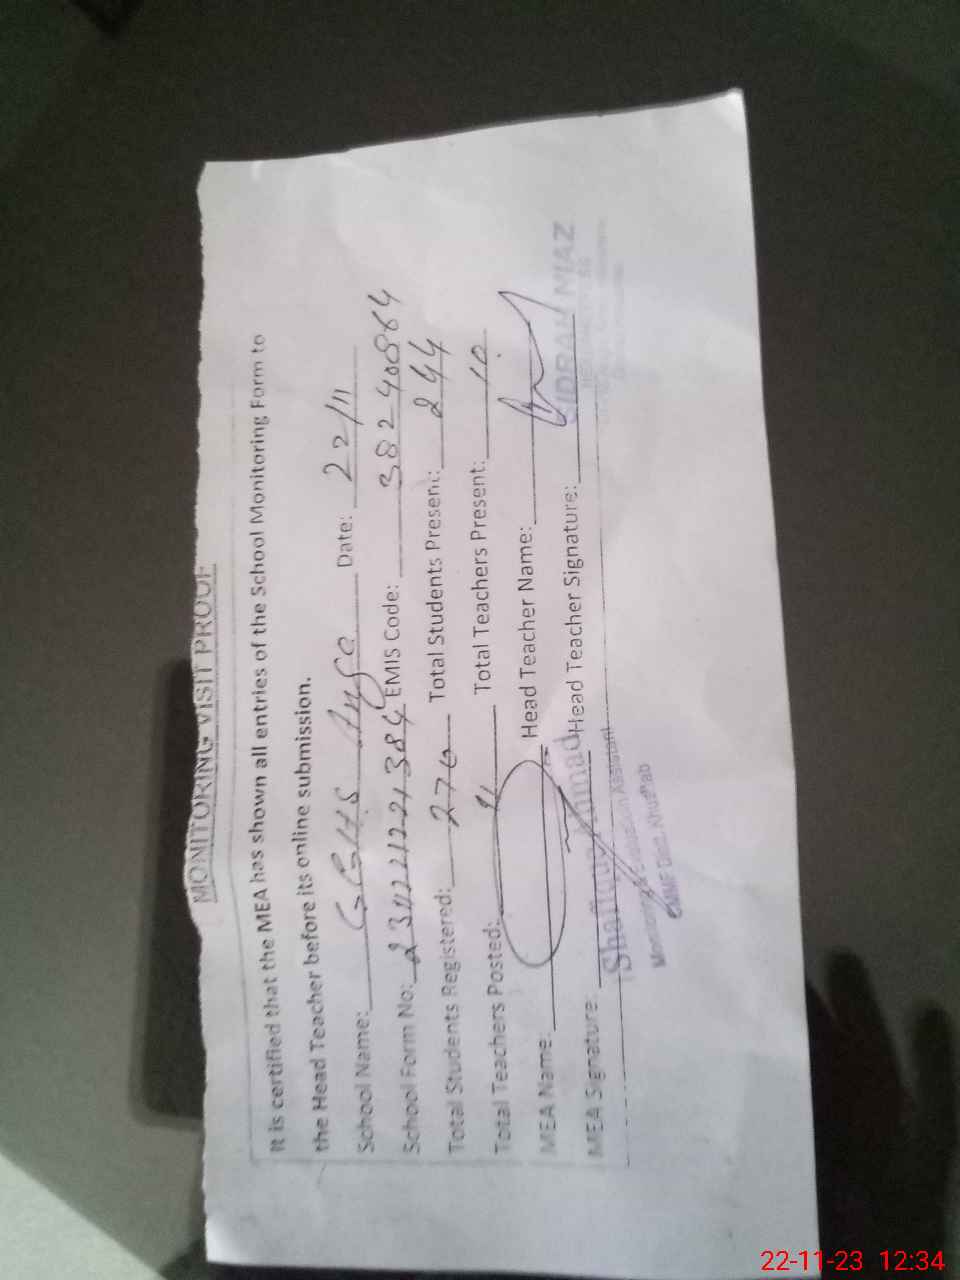 MONITORING VISIT PROOF
It is certified that the MEA has shown all entries of the School Monitoring Form to
the Head Teacher before its online submission.
School Name: GGHS Date: 22/11
School Form No: EMIS Code: 382 40
Total Students Registered: 276 Total Students Present: 244
Total Teachers Posted: 11 Total Teachers Present: 10
MEA Name: Head Teacher Name:
MEA Signature: Head Teacher Signature:
Ahmad
SIDRAH NIAZ
Monitoring & Evaluation Assistant
Distt. Khushab
22-11-23 12:34